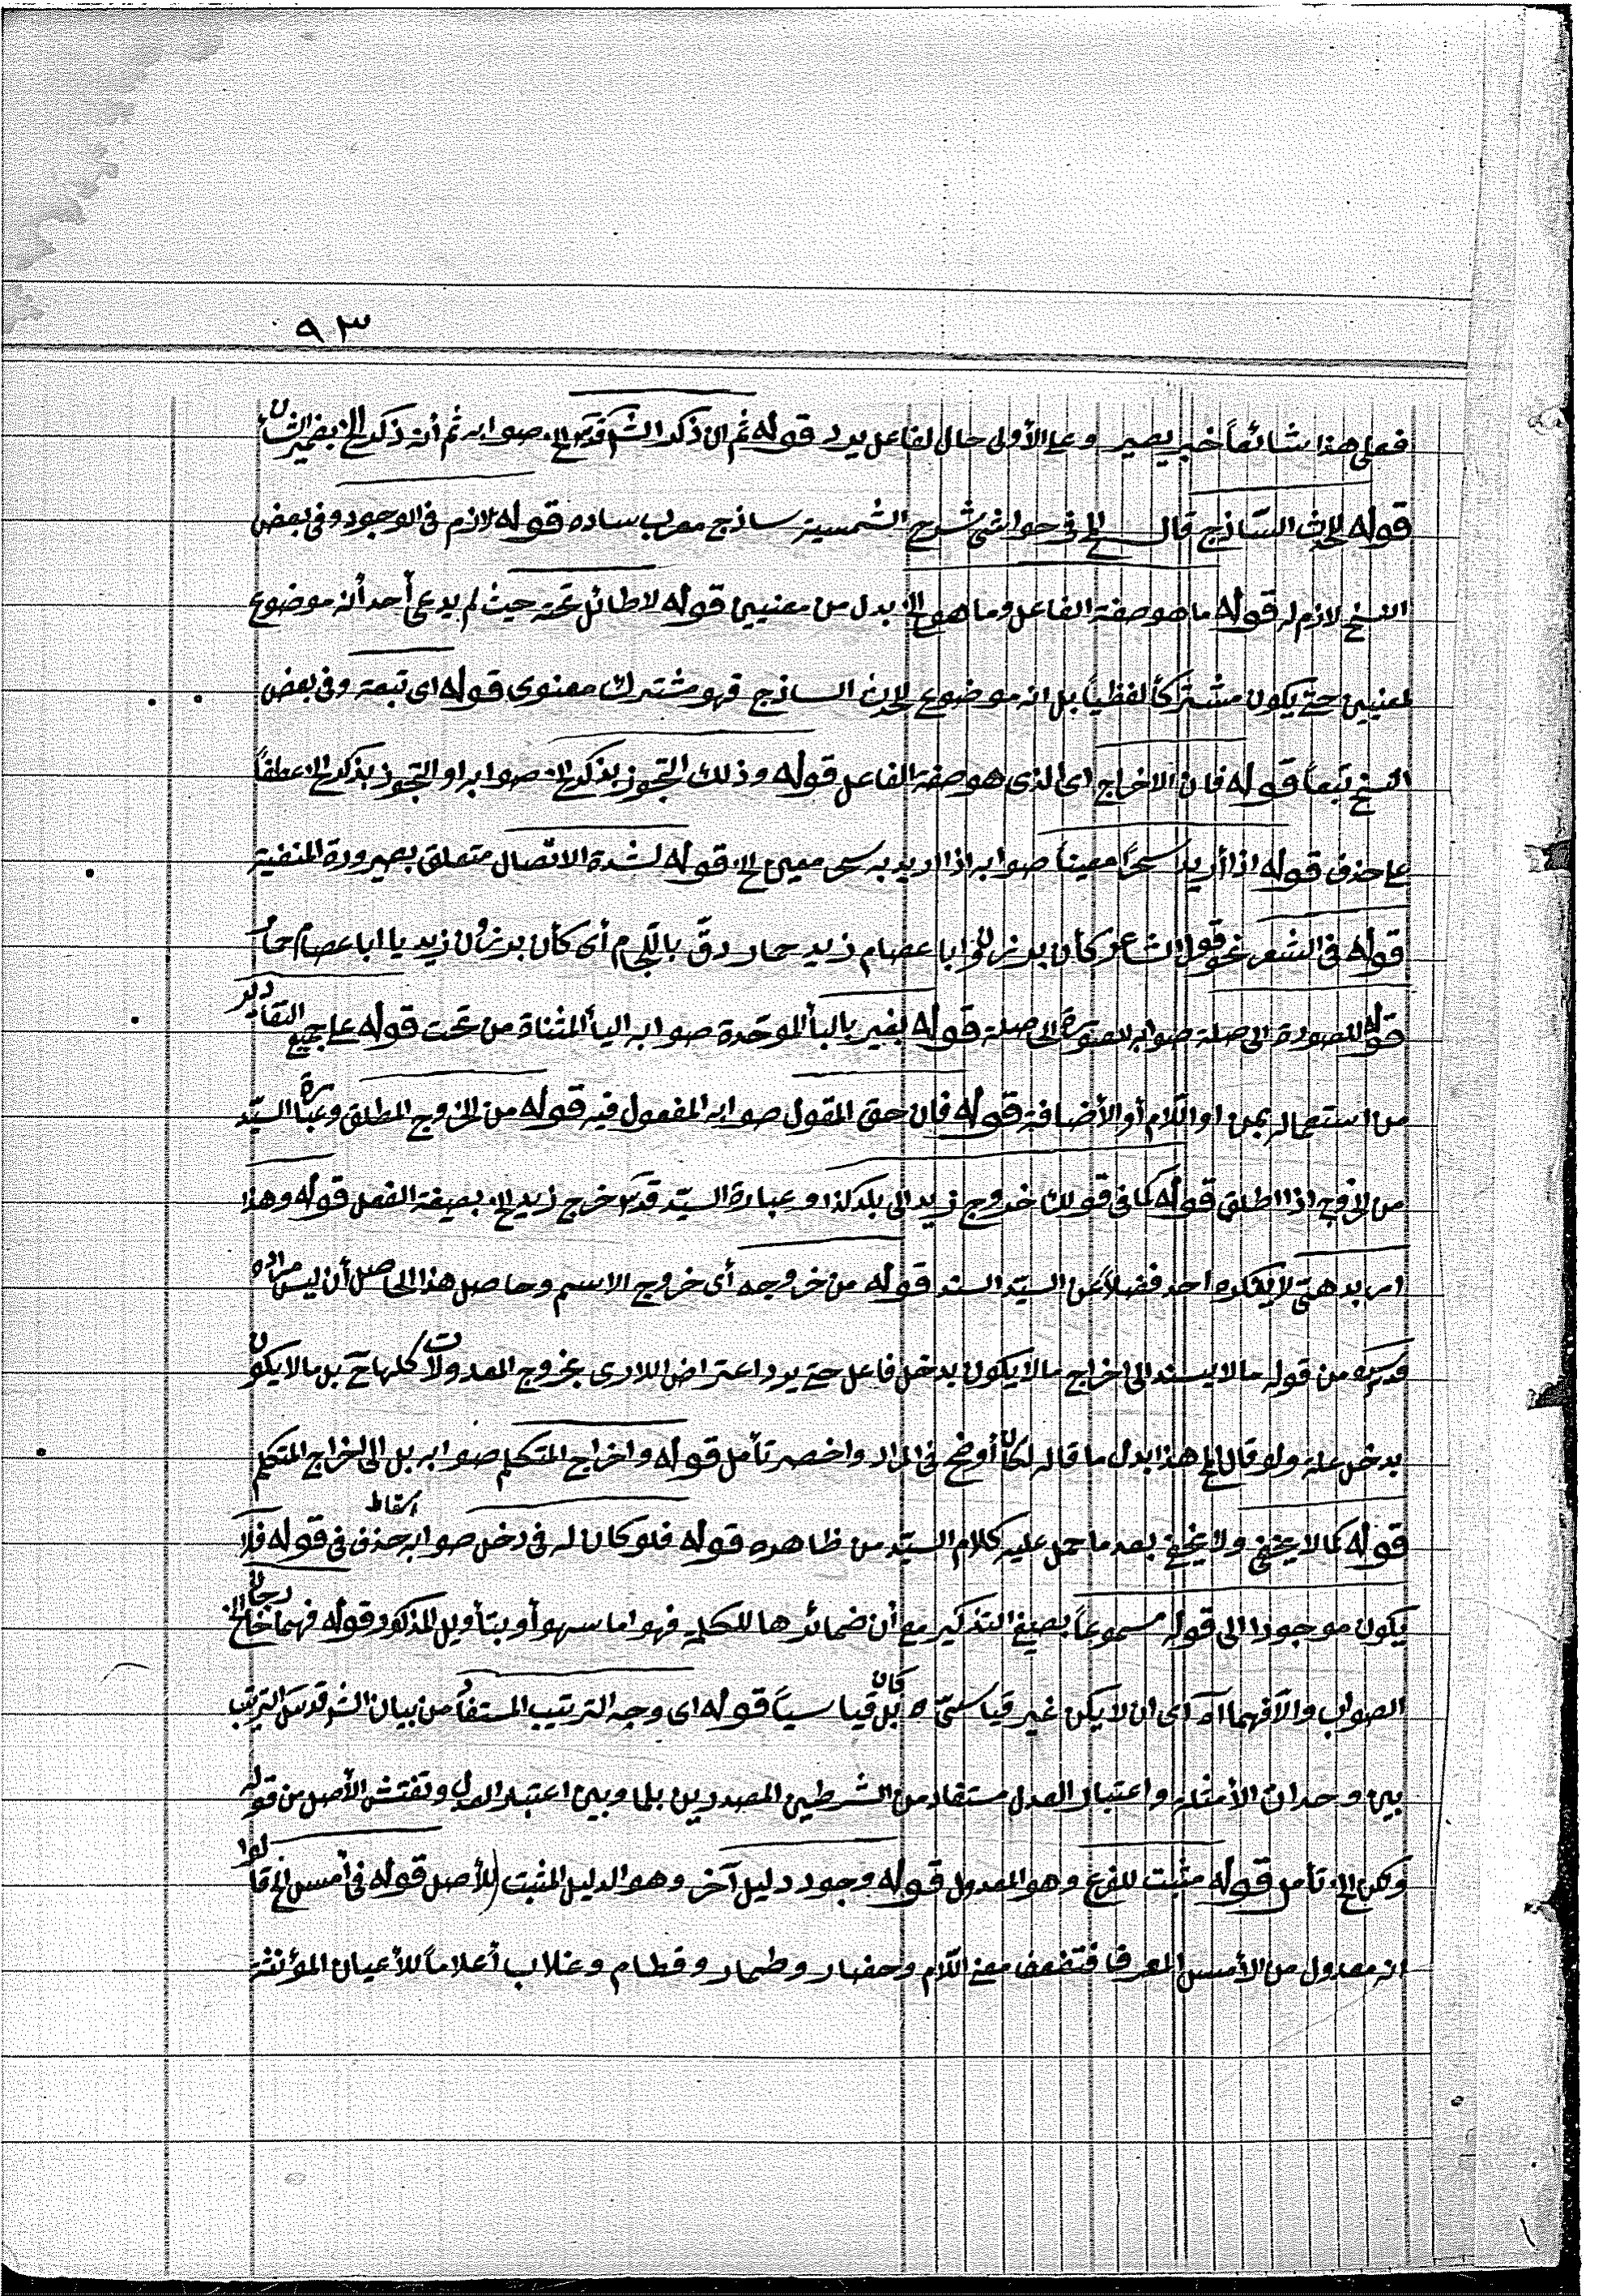 ٩٣
فعلى هذا شائعاً خبر يصير وعلى الأولى حال لفاعل يرد قوله ثم ان ذكر الش قدس الخ صوابه ثم أنه ذكر الخ بضمير الشأن
قوله للحدث السّاذج قال في حواشي شرح الشمسية ساذج معرب ساده قوله لازم في الوجود وفي بعض
النسخ لازم له قوله ما هو صفة الفاعل وما هو الخ بدل من معنيين قوله لا طائل تحته حيث لم يدع أحد أنه موضوع
لمعنيين حتى يكون مشتركاً لفظياً بل انه موضوع للحدث الساذج فهو مشترك معنوى قوله اى تبعة وفى بعض
النسخ تبعاً قوله فان الاخراج اى الذى هو صفة الفاعل قوله وذلك التجوز بذكر الخ صوابه او التجوز بذكر الخ عطفاً
على حذف قوله اذا أريد سحراً معيناً صوابه اذا اريد به سحر معين الخ قوله لشدة الاتصال متعلق بصيرورة المنفية
قوله فى الشعر نحو قول الشاعر كأن برذون ابا عصام زيد حمار دق باللجام أى كأن برذون زيد يا ابا عصام حمار
قوله للصورة الى صلة صوابه للصورة الى صلة قوله بغير بالبأ الموحّدة صوابه اليأ المثناة من تحت قوله على جميع التقادير
من استعماله بمن او اللام أو الأضافة قوله فان حق المقول صوابه المفعول فيه قوله من الخروج المطلق وعبارة السيّد
من الخروج اذا اطلق قوله كما فى قولك خروج زيد الى بلد كذا وعبارة السيّد قدس خرج زيد الخ بصيغة الفعل قوله وهذا
امر بدهىّ لا ينكره احد فضلاً عن السيّد السند قوله من خروجه أى خروج الاسم وحاصل هذا الحاصل أن ليس مراده
قدس سره من قوله ما لا يستند الى اخراج ما لا يكون بدخل فاعل حتى يرد اعتراض اللارى بخروج المعدولات كلها ح بل ما لا يكون
بدخل علة ولو قال الخ هذا بدل ما قاله لكان أوضح فى المراد واخصر تأمل قوله واخراج المتكلم صوابه بل الى اخراج المتكلم
قوله كما لا يخفى ولا يخفى بعد ما حمل عليه كلام السيّد من ظاهره قوله فلو كان له فى دخل صوابه اسقاط حذف فى قوله فلا
يكون موجودا الى قوله مسموعاً بصيغ التذكير مع أن ضمائرها للكلمة فهو اما سهو أو بتأويل المذكور قوله فهما خارجان الخ
الصواب والاّ فهما اه أى ان لا يكن غير قياسىّ ه بل كان قياسياً قوله اى وجه الترتيب المستفاد من بيان الش قدس الترتيب
بين وحدان الأمثلة واعتبار العدل مستفاد من الشرطين المصدرين بلما وبين اعتبار العدل وتفتش الأصل من قوله
ولكن الخ تأمل قوله مثبت للفرع وهو المعدول قوله وجود دليل آخر وهو الدليل المثبت للأصل قوله فى أمس الخ قالوا
انه معدول من الأمس المعرف فتضمن معنى اللّام وحضار وطمار وقطام وغلاب أعلاماً للأعيان المؤنثة